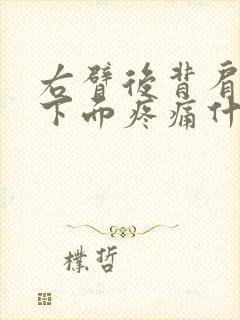 右臂後背肩
下面疼痛什
樸哲